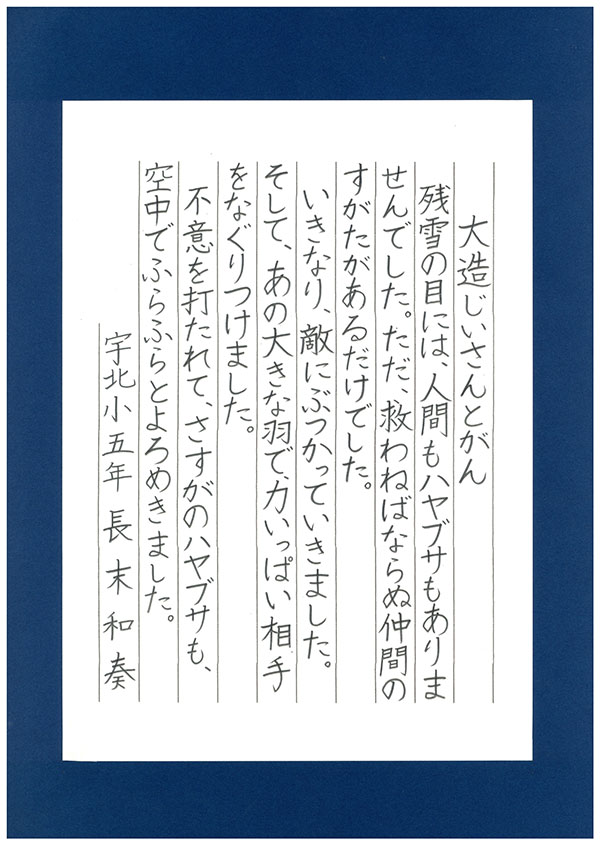 大造じいさんとがん
残雪の目には、人間もハヤブサもありま
せんでした。ただ、救わねばならぬ仲間の
すがたがあるだけでした。
いきなり、敵にぶつかっていきました。
そして、あの大きな羽で、力いっぱい相手
をなぐりつけました。
不意を打たれて、さすがのハヤブサも、
空中でふらふらとよろめきました。
宇北小五年 長末和奏